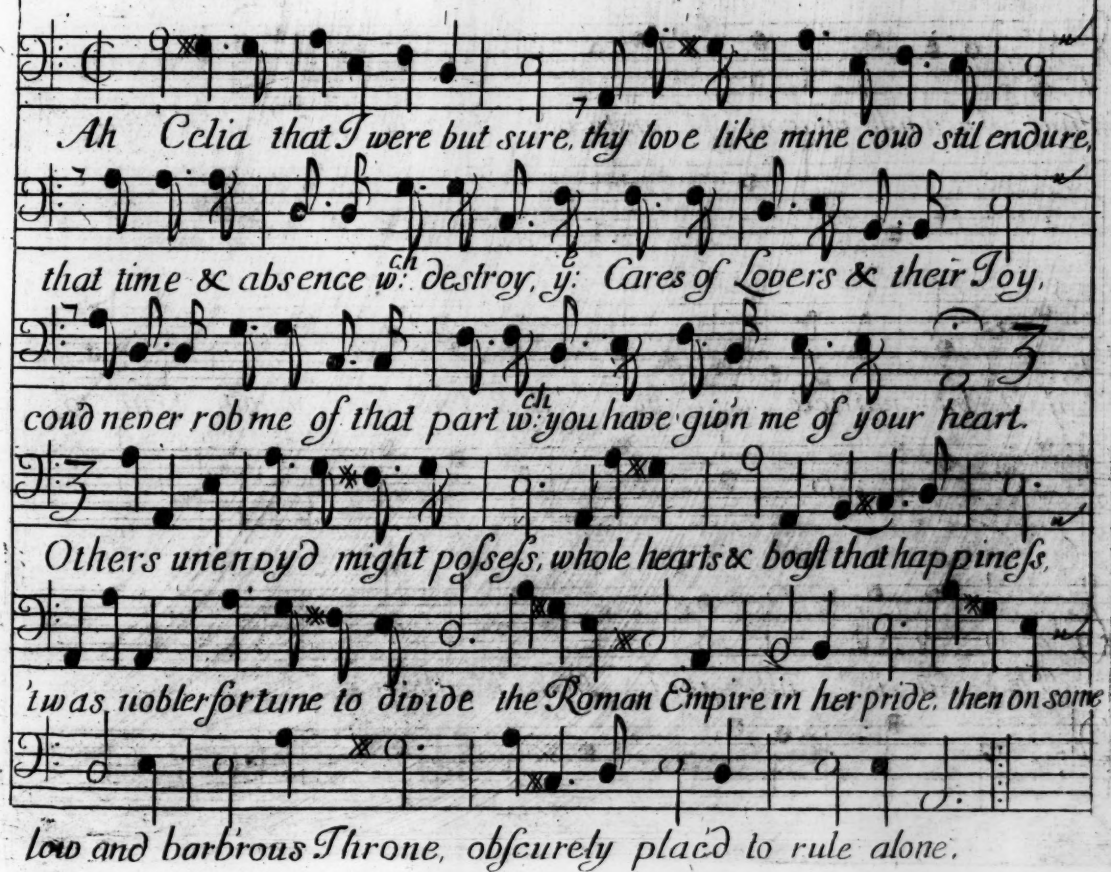 Ah Celia that I were but sure, thy love like mine coud stil endure,
that time & absence wch: destroy, ye: Cares of Lovers & their Joy,
cou'd never rob me of that part wch: you have giv'n me of your heart.
Others unenvy'd might poſseſs, whole hearts & boaſt that happineſs,
'twas nobler fortune to divide the Roman Empire in her pride, then on some
low and barb'rous Throne, obſcurely plac'd to rule alone.